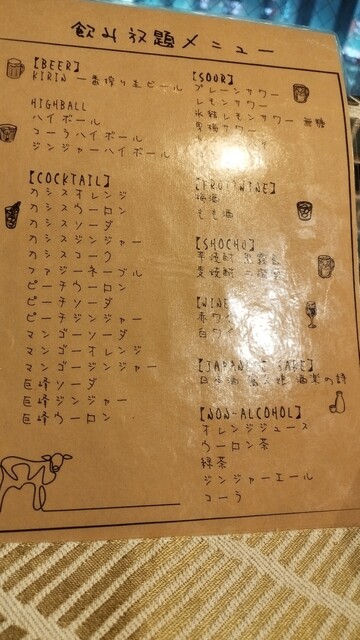 飲み放題メニュー
[BEER]
KIRIN 一番搾り生ビール
HIGHBALL
ハイボール
コーラハイボール
ジンジャーハイボール
[COCKTAIL]
カシスオレンジ
カシスウーロン
カシスソーダ
カシスジンジャー
カシスコーラ
ファジーネーブル
ピーチウーロン
ピーチソーダ
ピーチジンジャー
マンゴーソーダ
マンゴーオレンジ
マンゴージンジャー
巨峰ソーダ
巨峰ジンジャー
巨峰ウーロン
[SOUR]
プレーンサワー
レモンサワー
氷結レモンサワー 無糖
[FRUITWINE]
梅酒
もも酒
[SHOCHU]
芋焼酎
麦焼酎
[WINE]
赤ワイ
白ワイ
[JAPANESE SAKE]
日本酒
[NON-ALCOHOL]
オレンジジュース
ウーロン茶
緑茶
ジンジャーエール
コーラ